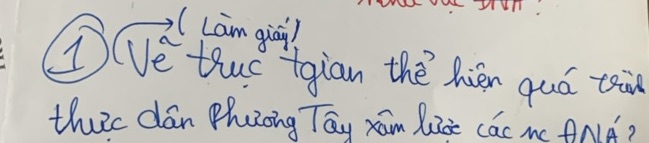 ĐNÁ?
(Làm giấy)
① Vẽ trục tgian thể hiện quá trình
thực dân Phương Tây xâm lược các nc ĐNÁ?